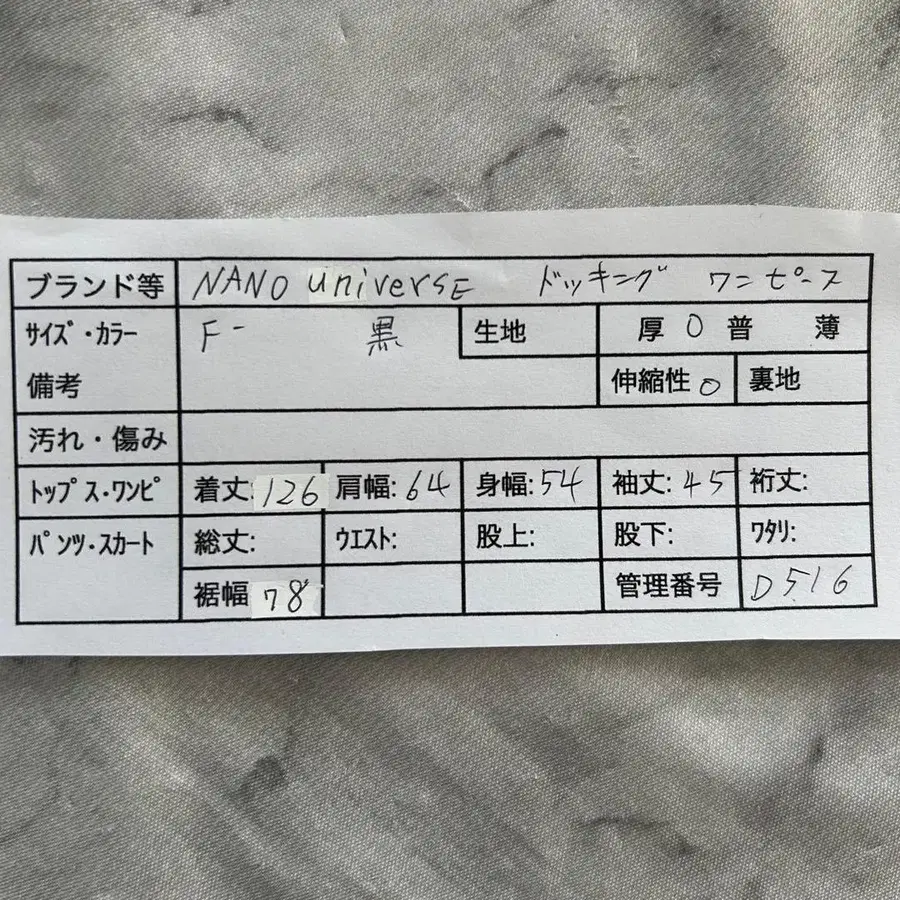 ブランド等 NANO universE ドッキング ワンピース
サイズ・カラー F- 黒 生地 厚 O 普 薄
備考 伸縮性 O 裏地
汚れ・傷み
トップス・ワンピ 着丈:126 肩幅:64 身幅:54 袖丈:45 裄丈:
パンツ・スカート 総丈: ウエスト: 股上: 股下: ワタリ:
裾幅 78 管理番号 D516